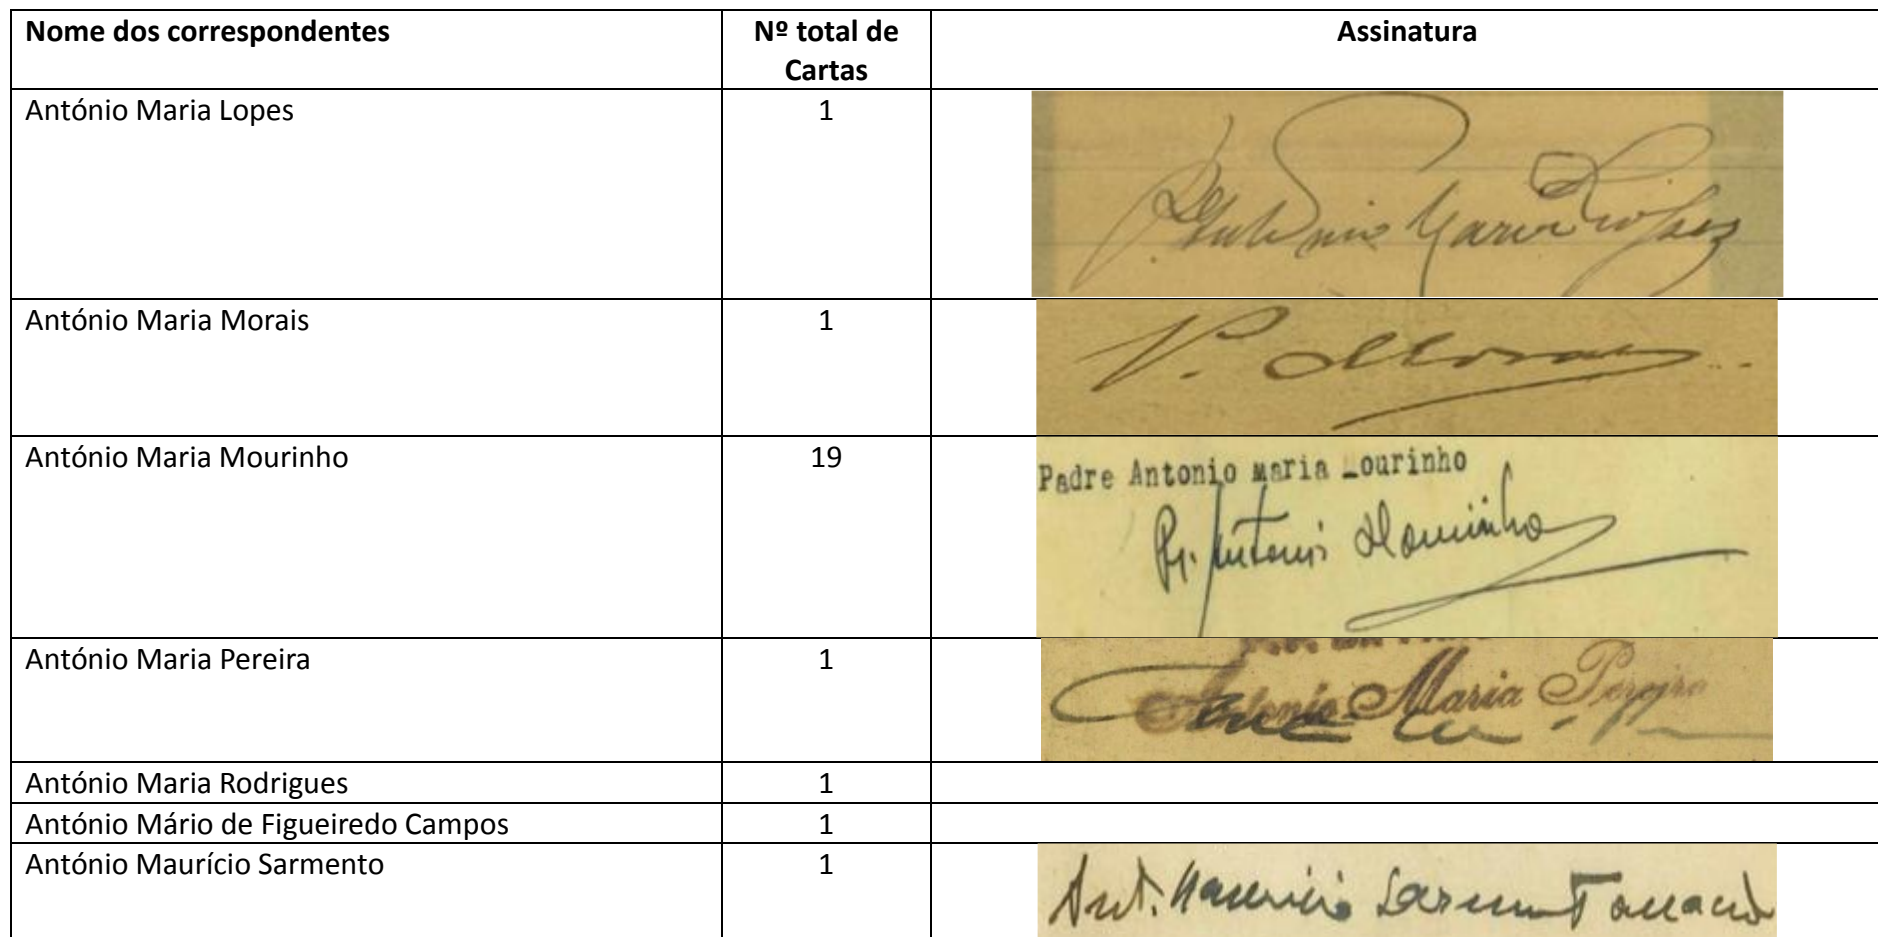 Nome dos correspondentes
Nº total de
Cartas
Assinatura
António Maria Lopes
1
P. António Maria Lopes
António Maria Morais
1
P. Moraes
António Maria Mourinho
19
Padre Antonio maria Mourinho
Pe. António Mourinho
António Maria Pereira
1
Antonio Maria Pereira
António Maria Rodrigues
1
António Mário de Figueiredo Campos
1
António Maurício Sarmento
1
Ant. Mauricio Sarmento